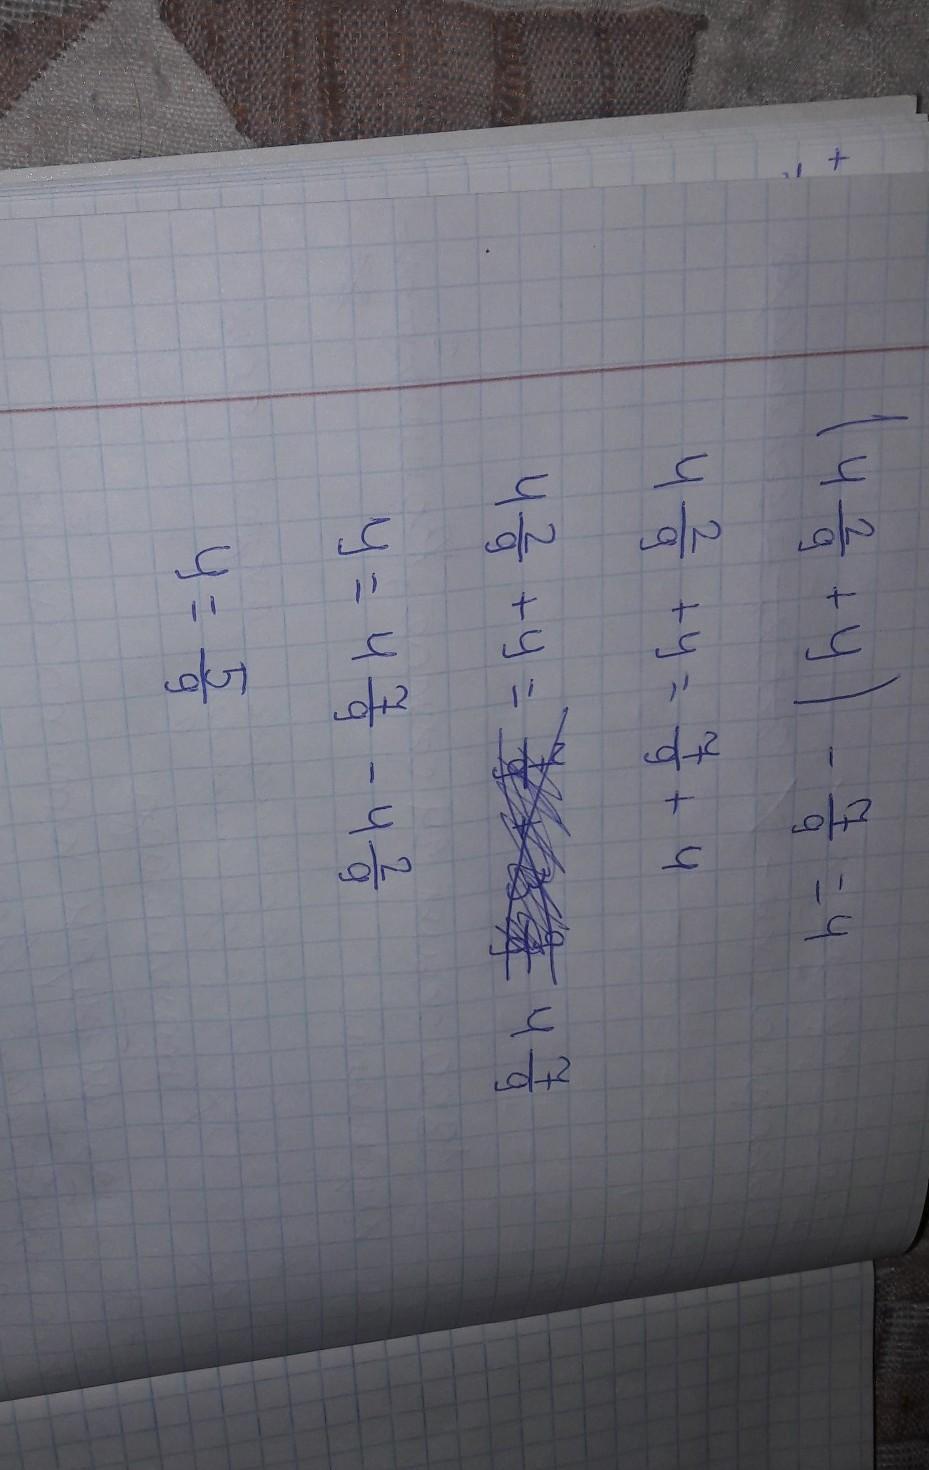 (4 2/9 + y) - 7/9 = 4
4 2/9 + y = 7/9 + 4
4 2/9 + y = 4 7/9
y = 4 7/9 - 4 2/9
y = 5/9